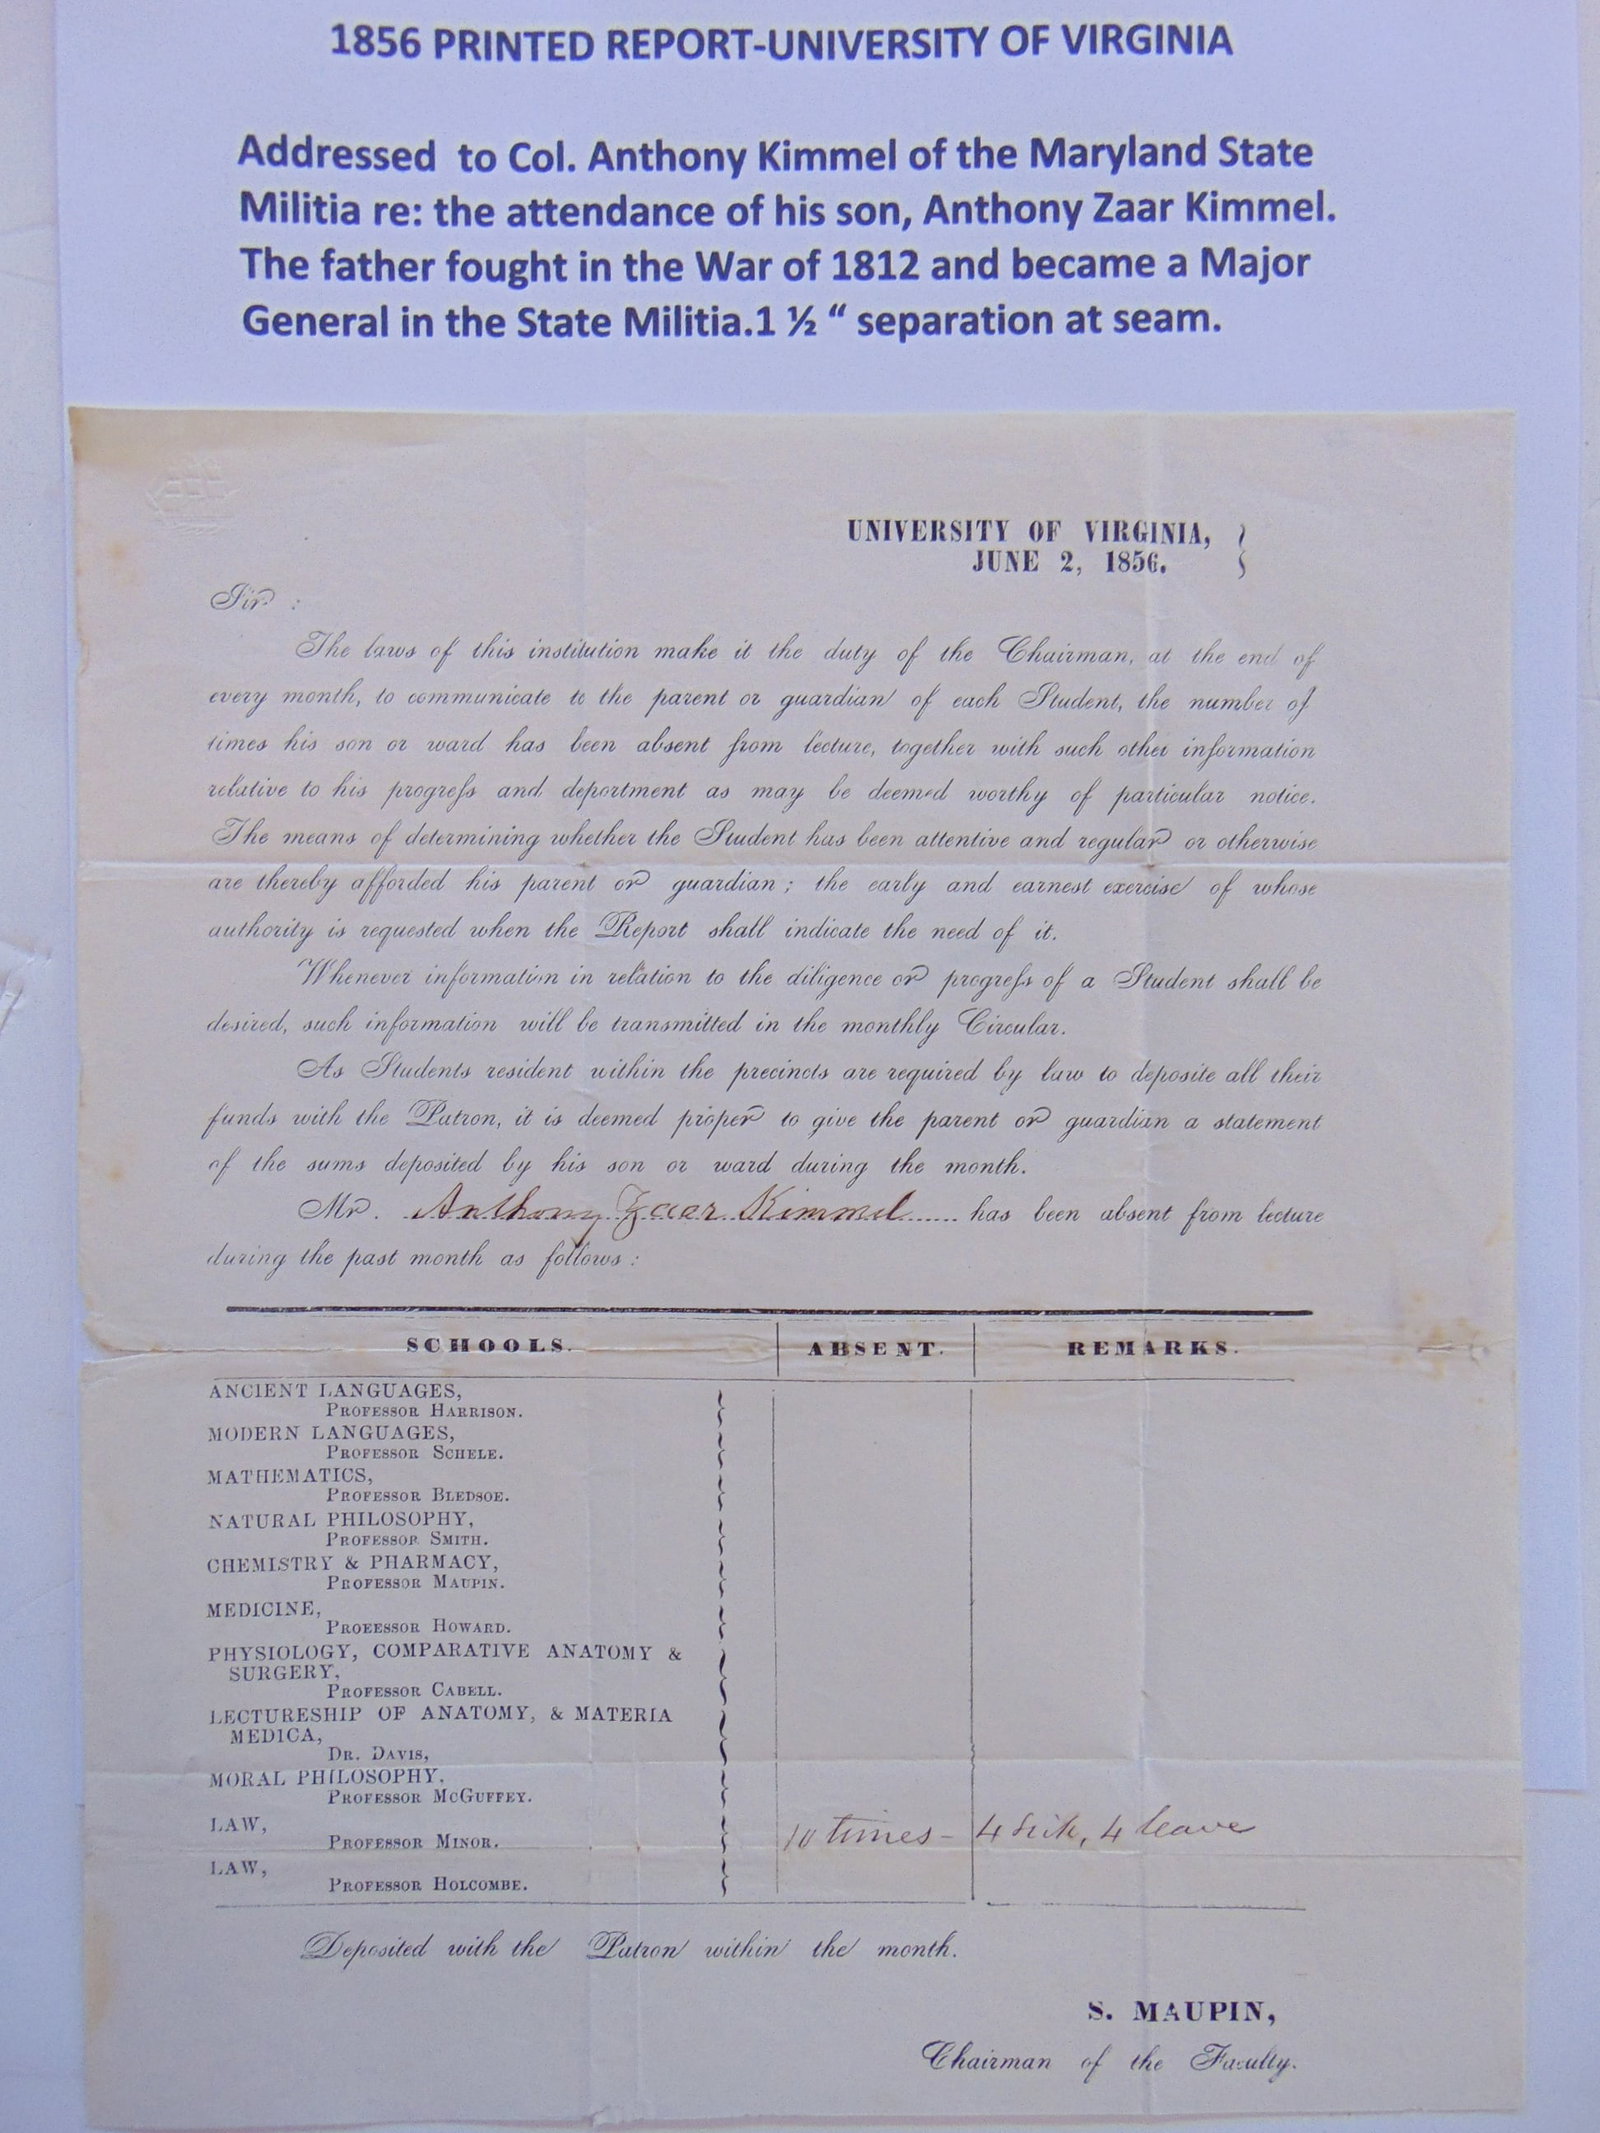 1856 PRINTED REPORT-UNIVERSITY OF VIRGINIA
Addressed to Col. Anthony Kimmel of the Maryland State
Militia re: the attendance of his son, Anthony Zaar Kimmel.
The father fought in the War of 1812 and became a Major
General in the State Militia.1 ½ “ separation at seam.
UNIVERSITY OF VIRGINIA,
JUNE 2, 1856.
Sir :
The laws of this institution make it the duty of the Chairman, at the end of
every month, to communicate to the parent or guardian of each Student, the number of
times his son or ward has been absent from lecture, together with such other information
relative to his progress and deportment as may be deemed worthy of particular notice.
The means of determining whether the Student has been attentive and regular or otherwise
are thereby afforded his parent or guardian ; the early and earnest exercise of whose
authority is requested when the Report shall indicate the need of it.
Whenever information in relation to the diligence or progress of a Student shall be
desired, such information will be transmitted in the monthly Circular.
As Students resident within the precincts are required by law to deposite all their
funds with the Patron, it is deemed proper to give the parent or guardian a statement
of the sums deposited by his son or ward during the month.
Mr. Anthony Zaar Kimmel has been absent from lecture
during the past month as follows :
SCHOOLS. ABSENT. REMARKS.
ANCIENT LANGUAGES,
PROFESSOR HARRISON.
MODERN LANGUAGES,
PROFESSOR SCHELE.
MATHEMATICS,
PROFESSOR BLEDSOE.
NATURAL PHILOSOPHY,
PROFESSOR SMITH.
CHEMISTRY & PHARMACY,
PROFESSOR MAUPIN.
MEDICINE,
PROEESSOR HOWARD.
PHYSIOLOGY, COMPARATIVE ANATOMY &
SURGERY,
PROFESSOR CABELL.
LECTURESHIP OF ANATOMY, & MATERIA
MEDICA,
DR. DAVIS,
MORAL PHILOSOPHY,
PROFESSOR MCGUFFEY.
LAW,
PROFESSOR MINOR. 10 times - 4 sick, 4 leave
LAW,
PROFESSOR HOLCOMBE.
Deposited with the Patron within the month.
S. MAUPIN,
Chairman of the Faculty.